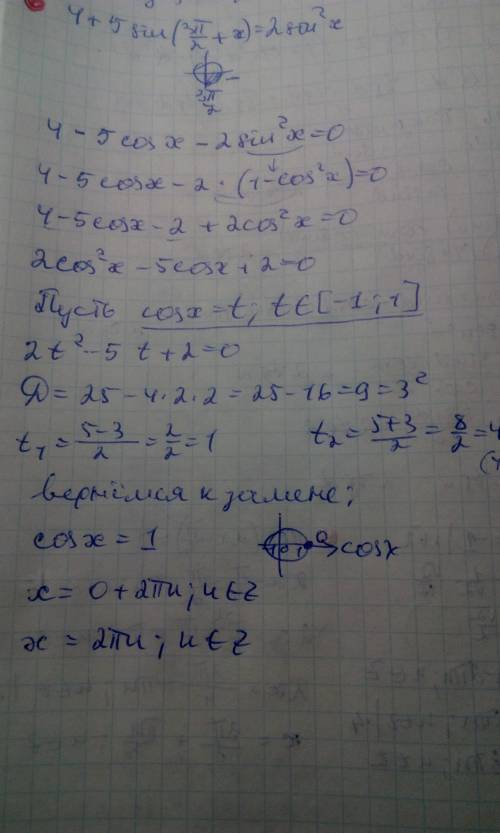 4 + 5 sin(3π/2 + x) = 2 sin²x
3π/2
4 - 5 cos x - 2 sin²x = 0
4 - 5 cos x - 2 · (1 - cos²x) = 0
4 - 5 cos x - 2 + 2 cos²x = 0
2 cos²x - 5 cos x + 2 = 0
Пусть cos x = t; t ∈ [-1; 1]
2t² - 5t + 2 = 0
D = 25 - 4·2·2 = 25 - 16 = 9 = 3²
t₁ = (5-3)/2 = 2/2 = 1 t₂ = (5+3)/2 = 8/2 = 4
вернёмся к замене;
cos x = 1 0 cos x
x = 0 + 2πn; n ∈ Z
x = 2πn; n ∈ Z